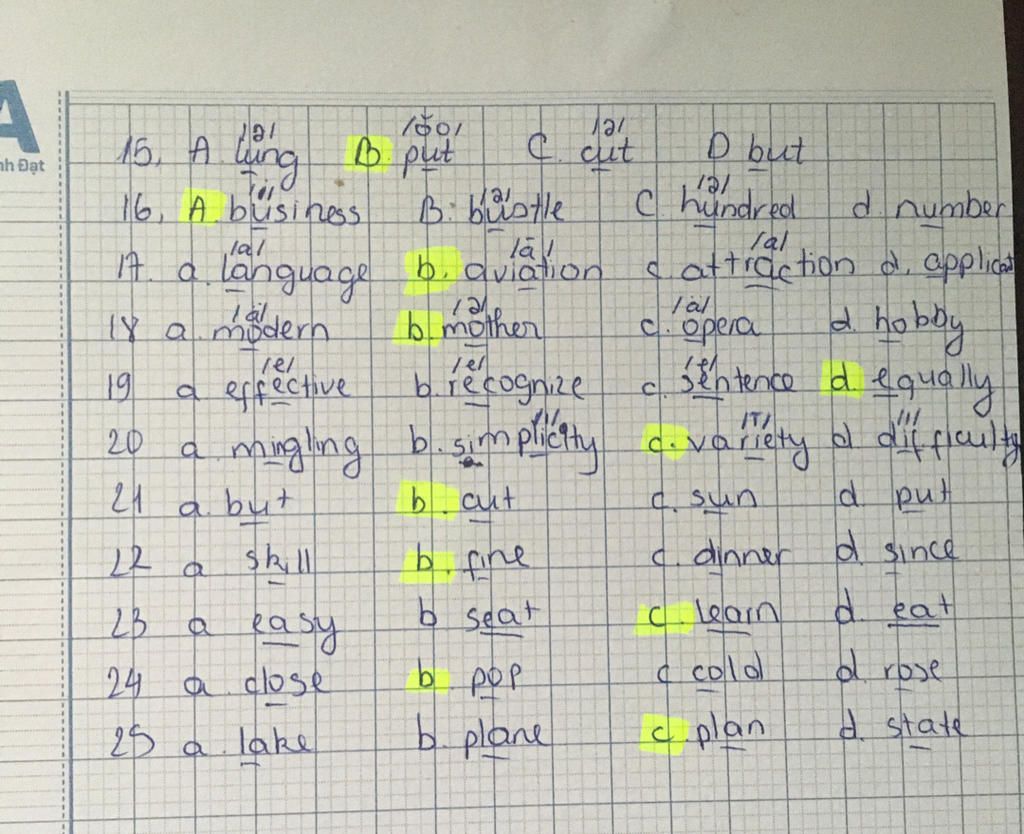 A
nh Đạt
/ə/ /o͝o/ /ə/
15, A. lung B. put C. cut D but
/i/ /ə/ /ə/
16, A. business B. bustle C. hundred d. number
/a/ /ā/ /a/
17. a. language b. aviation c. attraction d. applicat
/ä/ /ə/ /ä/
18 a. modern b. mother c. opera d. hobby
/e/ /e/ /e/
19 a effective b. recognize c. sentence d. equally
/i/ /ī/ /i/
20 a mingling b. simplicity c. variety d difficulty
21 a. but b. cut c. sun d put
22 a skill b. fine c. dinner d. since
23 a easy b seat c. learn d. eat
24 a. close b pop c cold d. rose
25 a. lake b. plane c. plan d. state